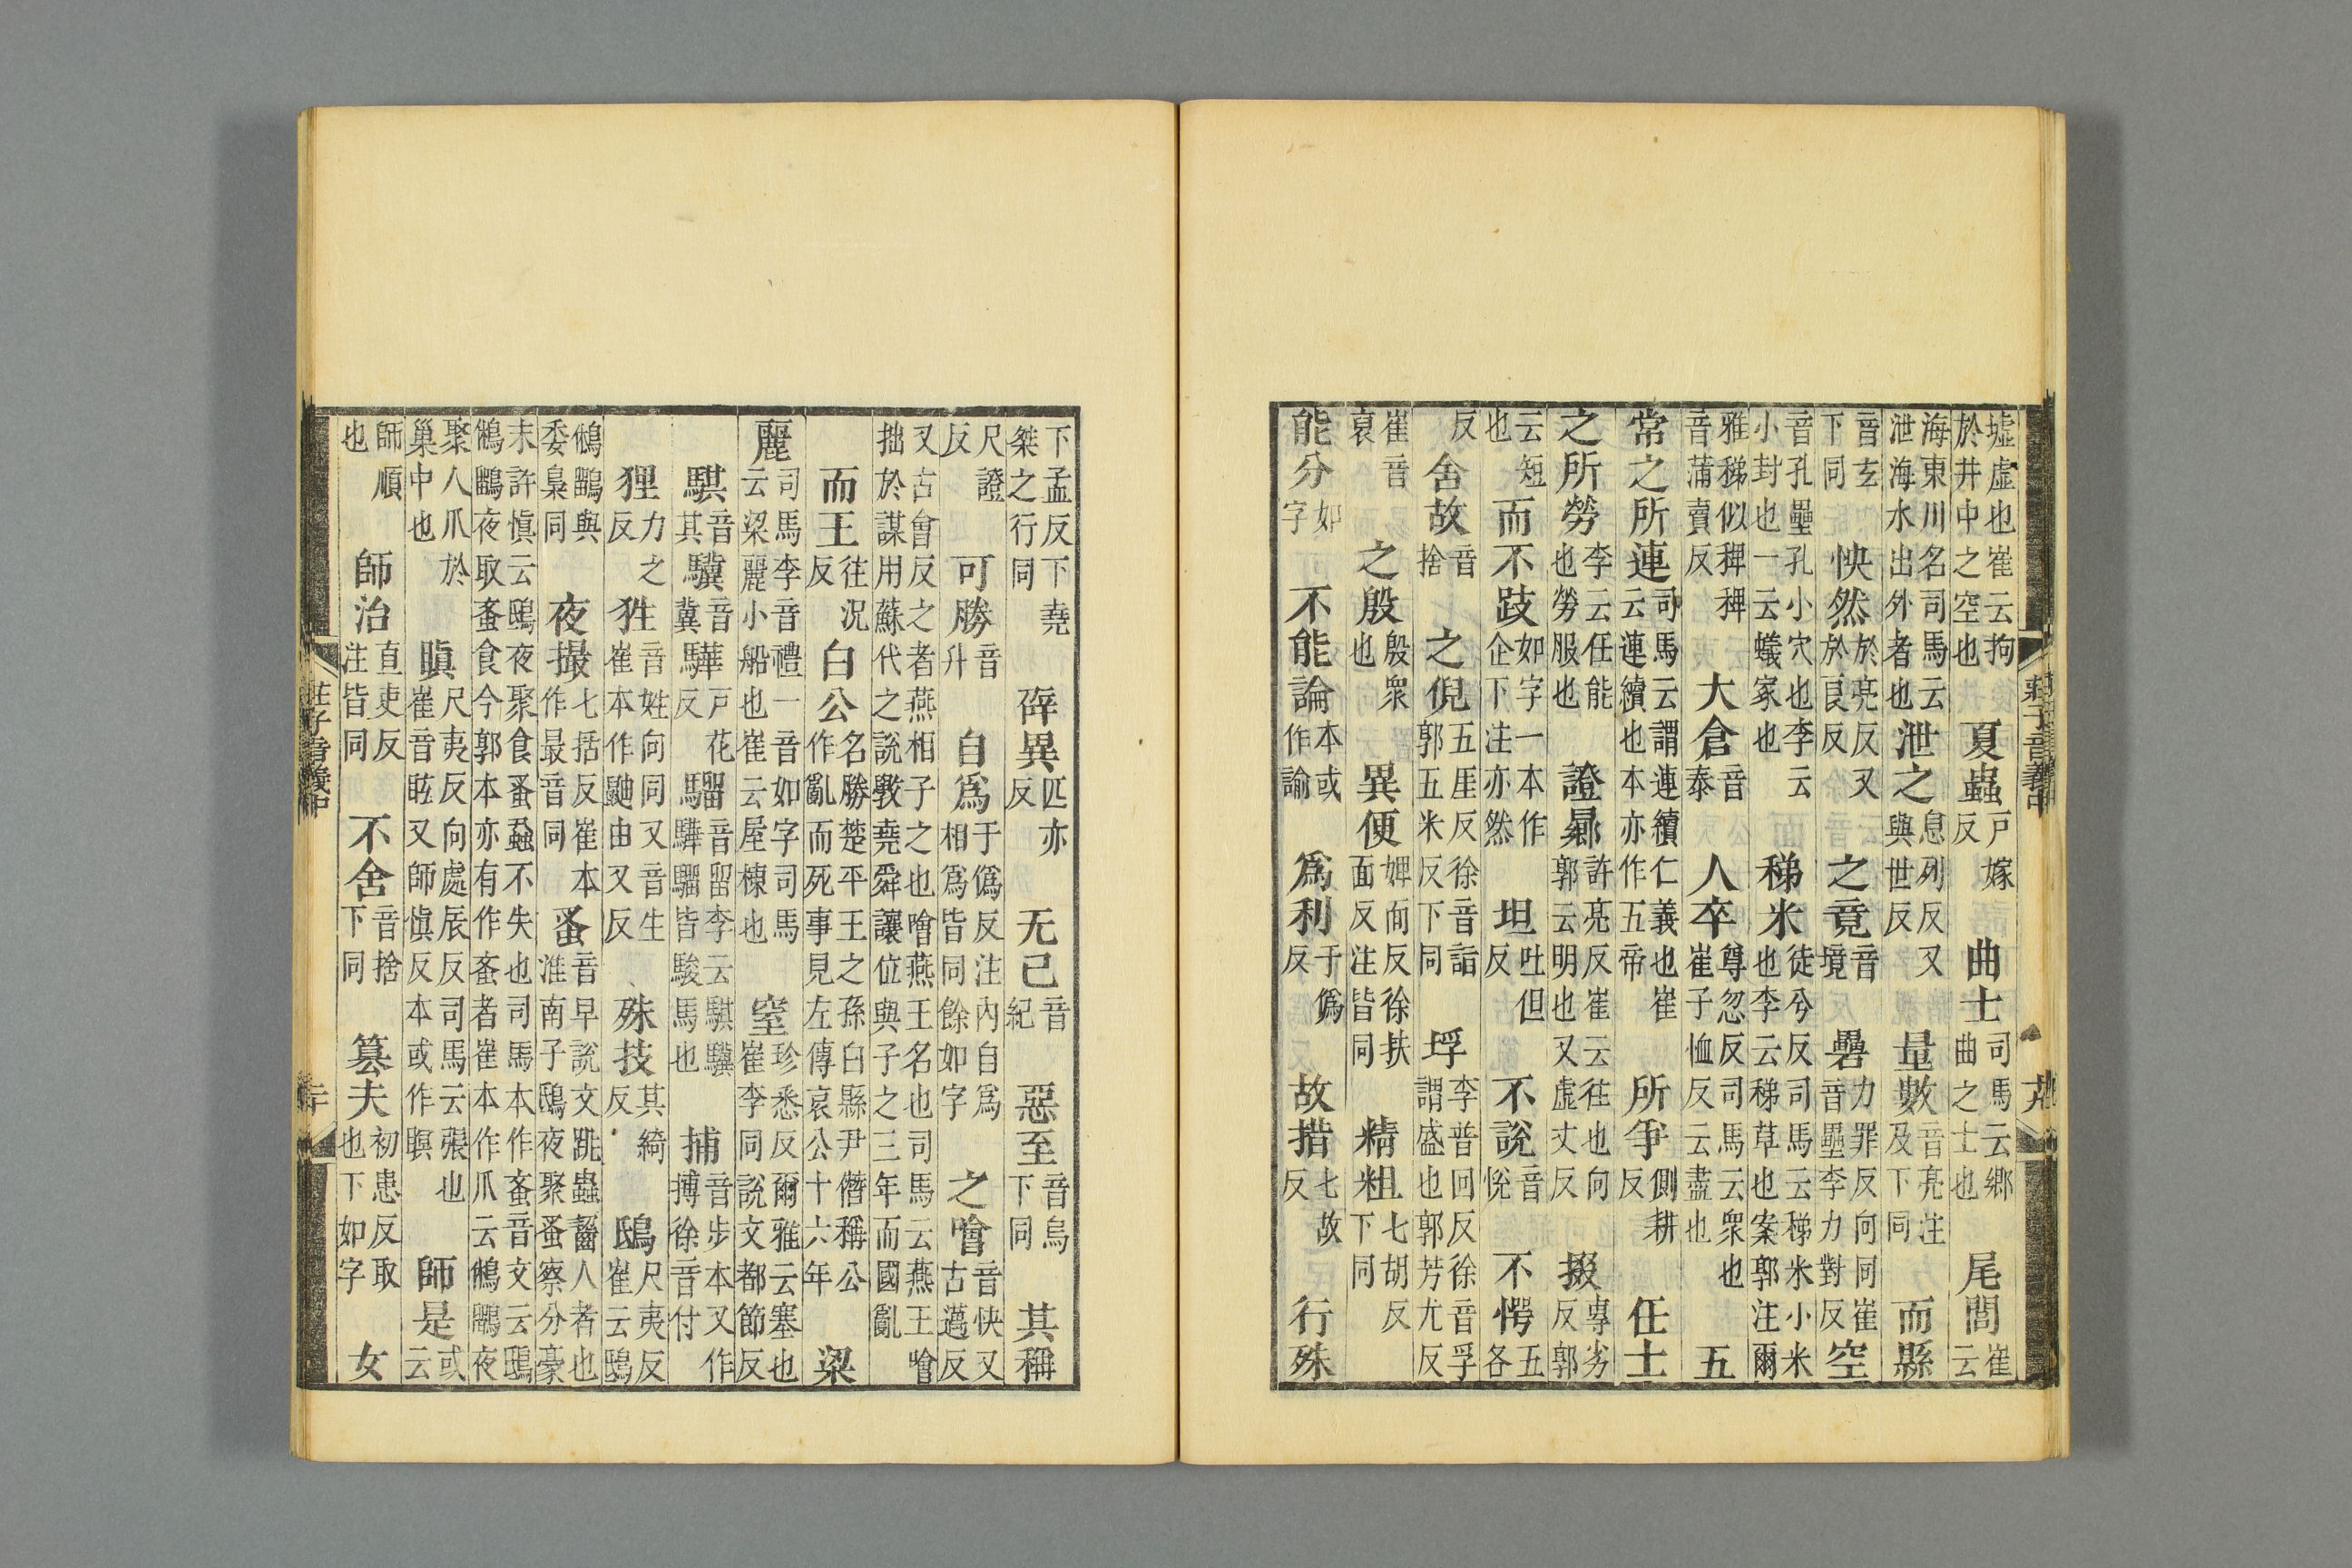 墟虛也崔云拘於井中之空也 夏蟲戶嫁反 曲士司馬云鄉曲之士也 尾閭崔云
海東川名司馬云泄海水出外者也 泄之息列反又與世反 量數音亮注及下同 而縣
音玄下同 怏然於亮反又於良反 之竟音境 礨力罪反向同崔音壘李力對反 空
音孔壘孔小穴也李云小封也一云蟻冢也 稊米徒兮反司馬云稊米小米也李云稊草也案郭注爾
雅稊似稗稗音蒲賣反 大倉音泰 人卒尊忽反司馬云眾也崔子恤反云盡也 五
常之所連司馬云謂連續仁義也崔云連續也本亦作五帝 所爭側耕反 任士
之所勞李云任能也勞服也 證曏許亮反崔云往也向郭云明也又虛丈反 掇專劣反郭
云短也 而不跂如字一本作企下注亦然 坦吐但反 不說音悅 不愕五各
反 舍故音捨 之倪五厓反徐音詣郭五米反下同 垺李普回反徐音孚謂盛也郭芳尤反
崔音裒 之殷殷眾也 異便婢面反徐扶面反注皆同 精粗七胡反下同
能分如字 不能論本或作諭 爲利于僞反 故措七故反 行殊
莊子音義中
下孟反下堯桀之行同 辟異匹亦反 无己音紀 惡至音烏下同 其稱
尺證反 可勝音升 自爲于僞反注內自爲相爲皆同餘如字 之噲音快又古邁反
又古會反之者燕相子之也噲燕王名也司馬云燕王噲拙於謀用蘇代之說斆堯舜讓位與子之三年而國亂
而王往況反 白公名勝楚平王之孫白縣尹僭稱公作亂而死事見左傳哀公十六年 梁
麗司馬李音禮一音如字司馬云梁麗小船也崔云屋棟也 窒珍悉反爾雅云塞也崔李同說文都節反
騏音其 驥音冀 驊戶花反 騮音留李云騏驥驊騮皆駿馬也 捕音步本又作搏徐音付
狸力之反 狌音姓向同又音生崔本作鼬由又反 殊技其綺反 鴟尺夷反崔云鴟
鵂鶹與委梟同 夜撮七括反崔本作最音同 蚤音早說文跳蟲齧人者也淮南子鴟夜聚蚤察分豪
末許慎云鴟夜聚食蚤蝨不失也司馬本作蚉音文云鴟鵂鶹夜取蚉食今郭本亦有作蚉者崔本作爪云鵂鶹夜
聚人爪於巢中也 瞋尺夷反向處辰反司馬云張也崔音眩又師慎反本或作瞑 師是或云
師順也 師治直吏反注皆同 不舍音捨下同 篡夫初患反取也下如字 女
莊子音義中